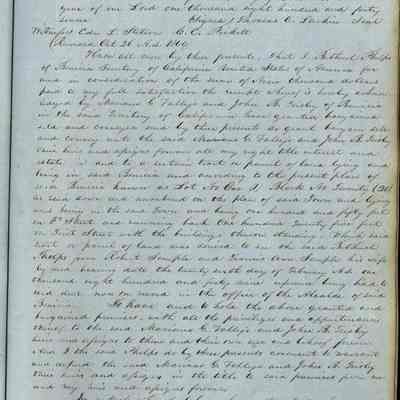 year of our Lord one thousand eight hundred and forty
seven (Signed) Thomas O. Larkin Seal
Witness Eden L. Stetson C. E. Pickett
Know all men by these presents, That I Bethuel Phelps
of Benicia Territory of California United States of America for
and in consideration of the sum of Nine thousand dollars
paid to my full satisfaction the receipt whereof is hereby acknow
ledged by Mariano G Vallejo and John A. Frisby of Benicia
in the said Territory of California have granted bargained
sold and conveyed and by these presents do grant bargain sell
and convey unto the said Mariano G Vallejo and John A. Frisby
their heirs and assigns forever all my right title interest and
estate in and to a certain tract or parcel of land lying and
being in said Benicia and according to the present plan of
said Benicia known as Lot No One (1) Block No Twenty (20)
as laid down and numbered on the plan of said Town and lying
and being in the said Town and being one hundred and fifty feet
on D Street and running back One hundred Twenty five feet
on First Street with the buildings thereon standing. The said
tract or parcel of land was deeded to me the said Bethuel
Phelps from Robert Semple and Francis Ann Semple his wife
by deed bearing date the twenty sixth day of February A.D. one
thousand eight hundred and forty nine reference being had to
said deed now on record in the office of the Alcalde of said
Benicia. To have and to hold the above granted and
bargained premises with all the privileges and appurtenances
thereof to the said Mariano G. Vallejo and John A. Frisby
heirs and assigns to them and their own use and behoof forever
And I the said Phelps do by these presents covenant to warrant
and defend the said Mariano G Vallejo and John A. Frisby
their heirs and assigns in the title to said premises
and my heirs and assigns forever